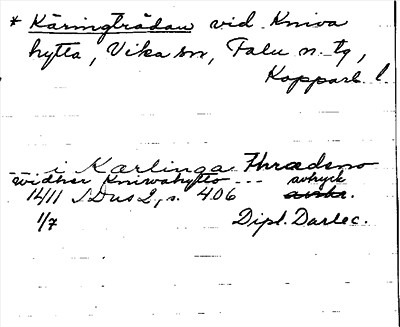 * Käringträdan vid Kniva
hytta, Vika sn, Falu n. tg,
Kopparb. l.
... i Kærlinga Thrædeno
widher Knivahytto ... avtryck
14/11 SDns 2, s. 406
1/7 Dipl. Darlec.